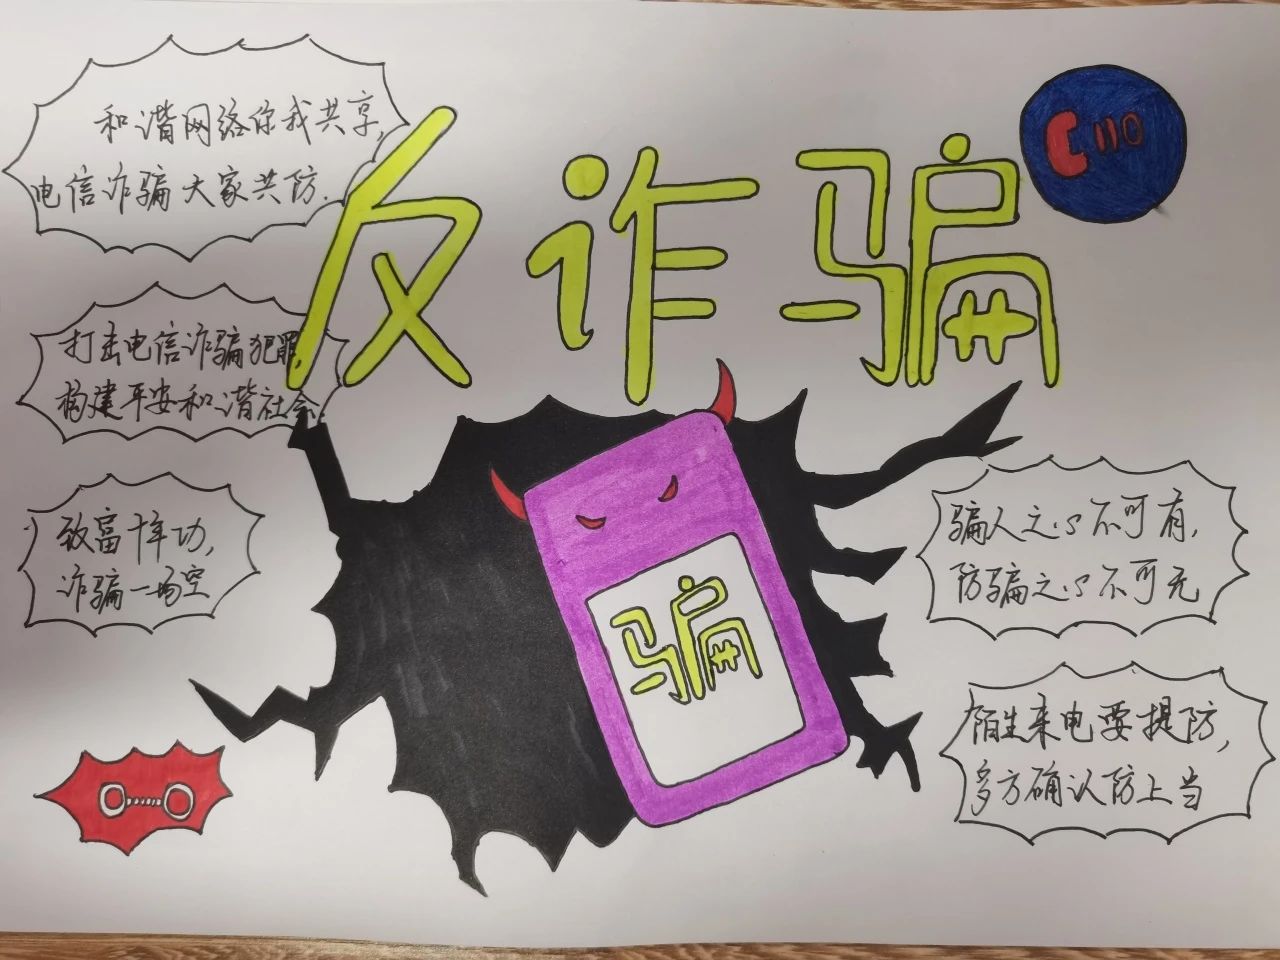 和谐网络你我共享,
电信诈骗大家共防.
反诈骗
110
打击电信诈骗犯罪,
构建平安和谐社会.
致富十年功,
诈骗一场空
骗
骗人之心不可有,
防骗之心不可无
陌生来电要提防,
多方确认防上当